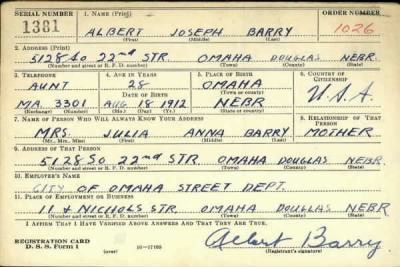 SERIAL NUMBER 1. NAME (Print) ORDER NUMBER
1381 ALBERT JOSEPH BARRY 1026
(First) (Middle) (Last)
2. ADDRESS (Print)
5128 SO 22nd STR. OMAHA DOUGLAS NEBR.
(Number and street or R. F. D. number) (Town) (County) (State)
3. TELEPHONE 4. AGE IN YEARS 5. PLACE OF BIRTH 6. COUNTRY OF CITIZENSHIP
AUNT 28 OMAHA
DATE OF BIRTH (Town or county) U.S.A.
MA. 3301 AUG 18 1912 NEBR
(Exchange) (Number) (Mo.) (Day) (Yr.) (State or country)
7. NAME OF PERSON WHO WILL ALWAYS KNOW YOUR ADDRESS 8. RELATIONSHIP OF THAT PERSON
MRS. JULIA ANNA BARRY MOTHER
(Mr., Mrs., Miss) (First) (Middle) (Last)
9. ADDRESS OF THAT PERSON
5128 SO 22nd STR. OMAHA DOUGLAS NEBR.
(Number and street or R. F. D. number) (Town) (County) (State)
10. EMPLOYER'S NAME
CITY OF OMAHA STREET DEPT.
11. PLACE OF EMPLOYMENT OR BUSINESS
11 & NICHOLS STR. OMAHA DOUGLAS NEBR
(Number and street or R. F. D. number) (Town) (County) (State)
I AFFIRM THAT I HAVE VERIFIED ABOVE ANSWERS AND THAT THEY ARE TRUE.
REGISTRATION CARD
D. S. S. Form 1 (over) Albert Barry
(Registrant's signature)